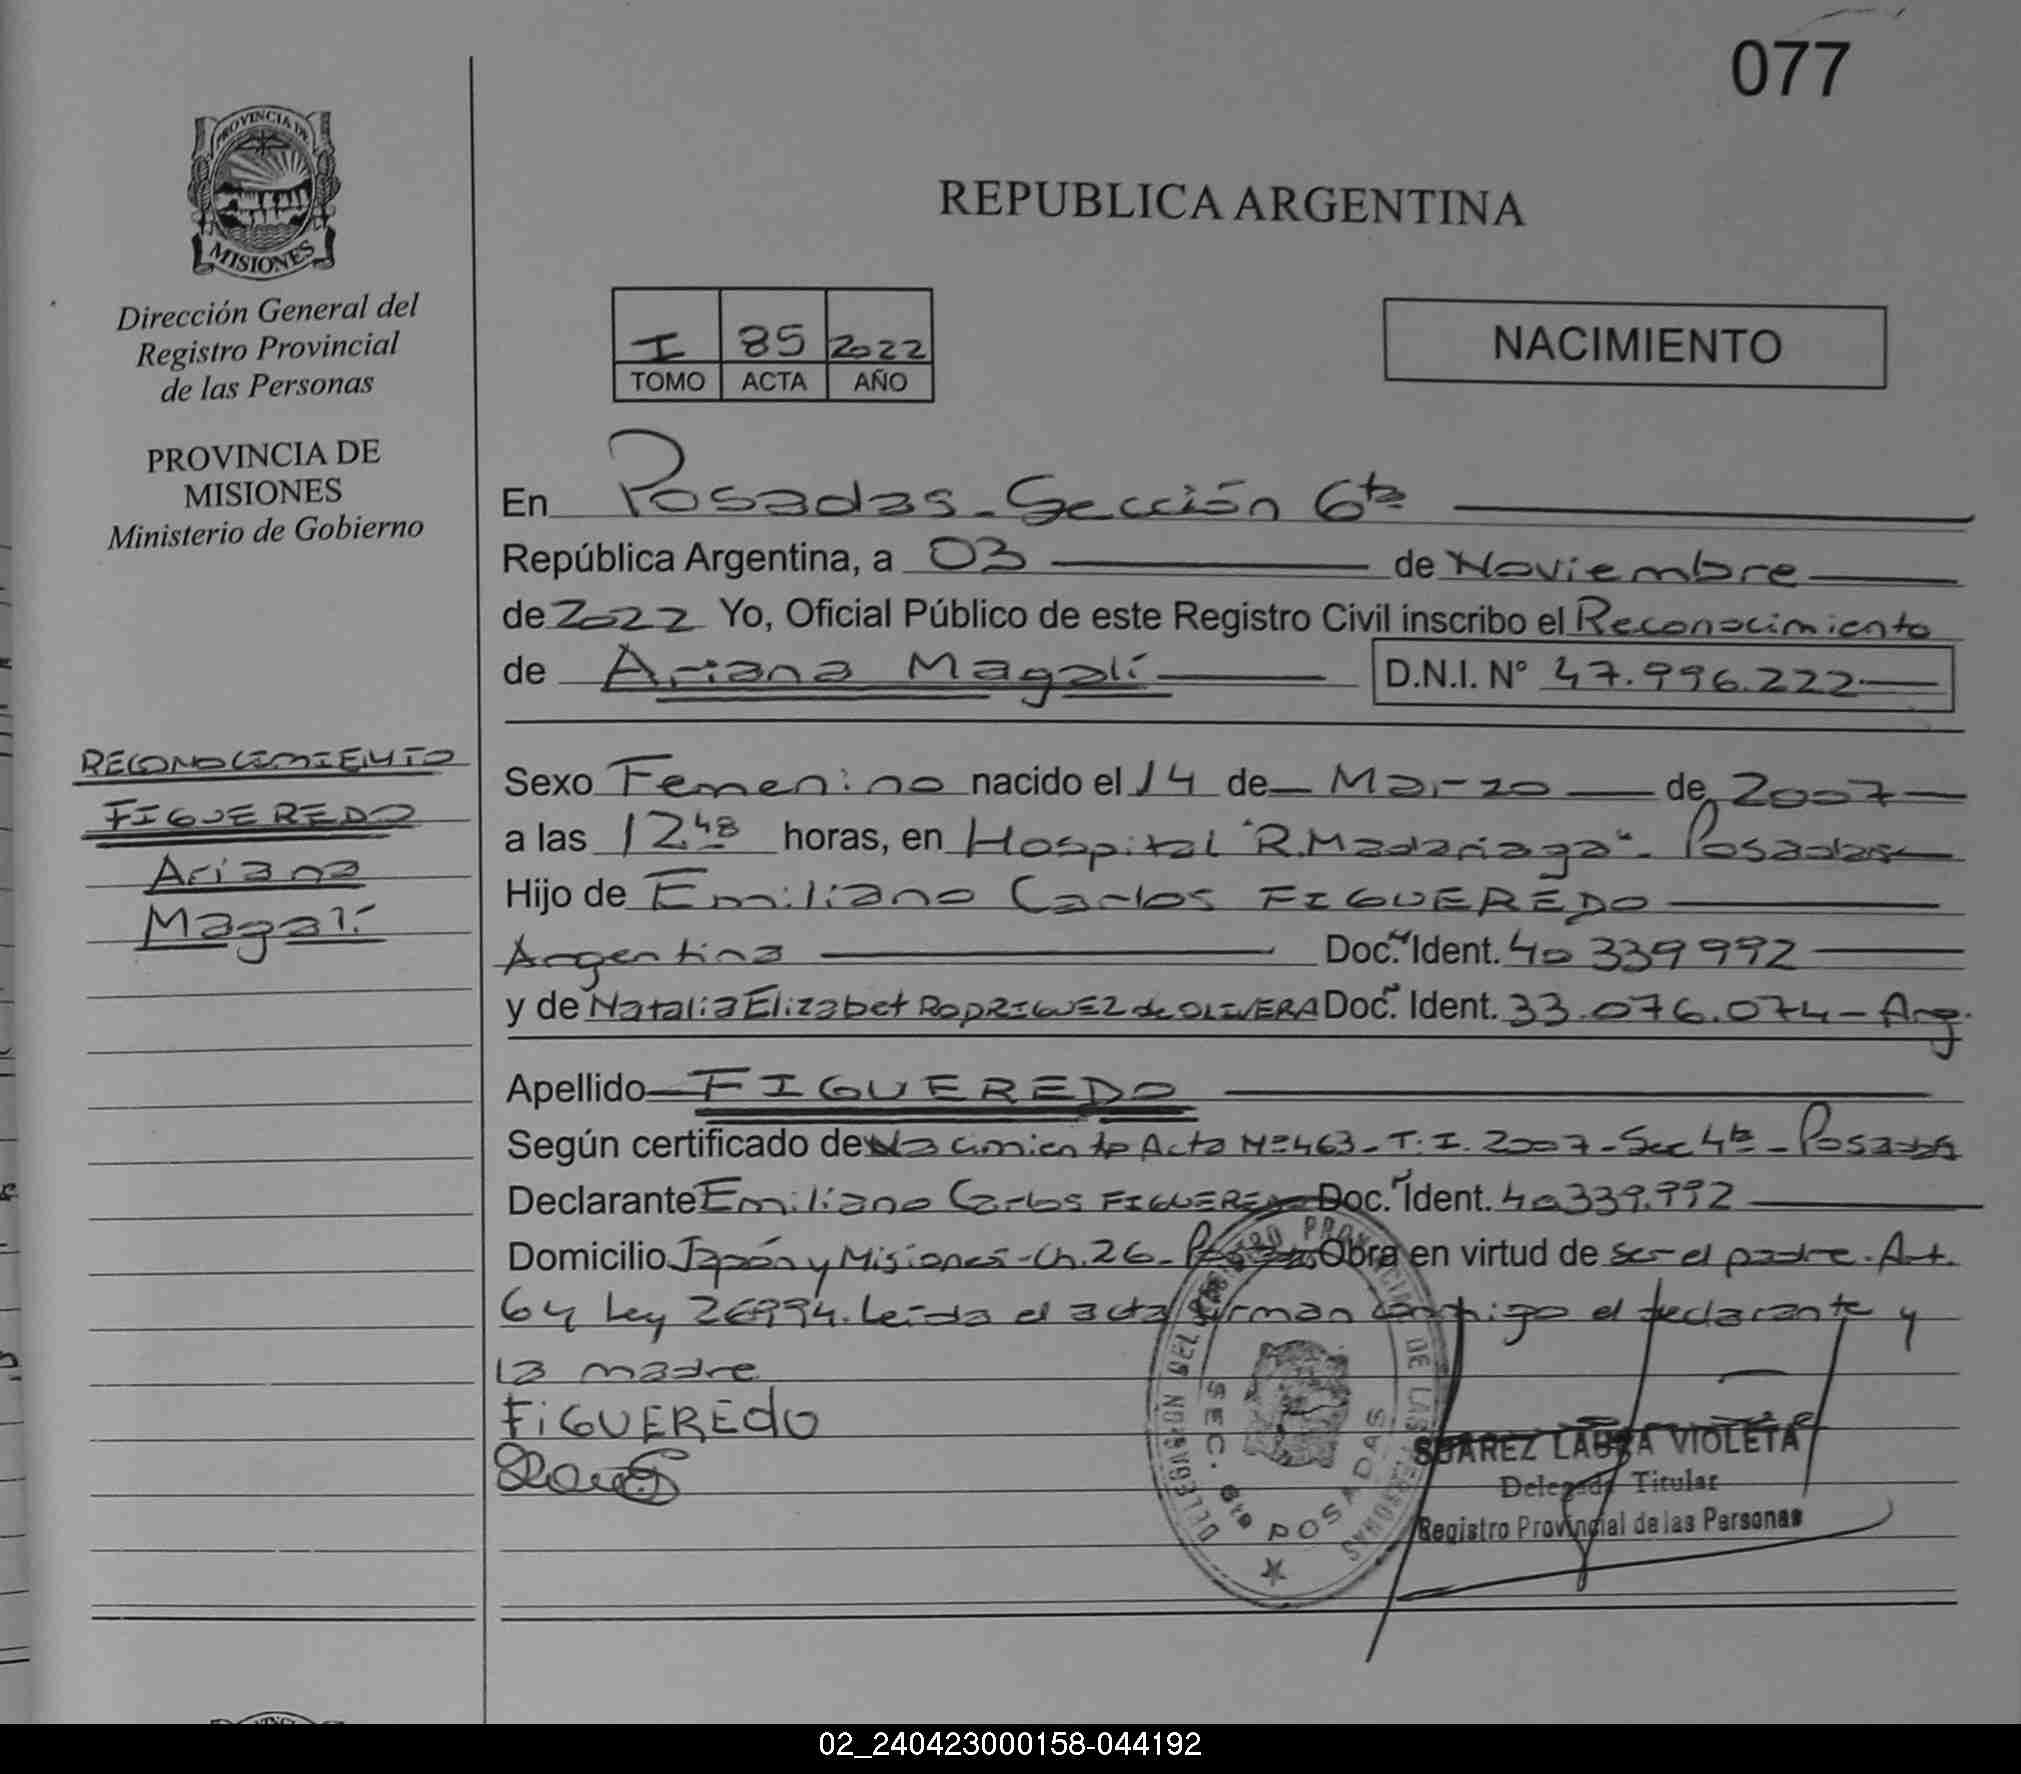 077
PROVINCIA DE
MISIONES
Dirección General del
Registro Provincial
de las Personas
PROVINCIA DE
MISIONES
Ministerio de Gobierno
RECONOCIMIENTO
FIGUEREDO
Ariana
Magalí
REPUBLICA ARGENTINA
I 85 2022
TOMO ACTA AÑO
NACIMIENTO
En Posadas - Sección 6ta
República Argentina, a 03 de Noviembre
de 2022 Yo, Oficial Público de este Registro Civil inscribo el Reconocimiento
de Ariana Magalí D.N.I. Nº 47.996.222
Sexo Femenino nacido el 14 de Marzo de 2007
a las 12:48 horas, en Hospital "R. Madariaga" - Posadas
Hijo de Emiliano Carlos FIGUEREDO
Argentina Doc. Ident. 40339992
y de Natalia Elizabet RODRIGUEZ de OLIVERA Doc. Ident. 33.076.074 - Arg.
Apellido FIGUEREDO
Según certificado de Nacimiento Acta Nº 463 - T. I. 2007 - Sec 4ta - Posadas
Declarante Emiliano Carlos FIGUEREDO Doc. Ident. 40339.992
Domicilio Japón y Misiones - Ch. 26 - Posadas Obra en virtud de ser el padre. Art.
64 Ley 26994. Leída el acta firman conmigo el declarante y
la madre
FiGUEREdO
DELEGACION DEL REGISTRO PROVINCIAL DE LAS PERSONAS
SEC. 6ta POSADAS
SUAREZ LAURA VIOLETA
Delegada Titular
Registro Provincial de las Personas
02_240423000158-044192